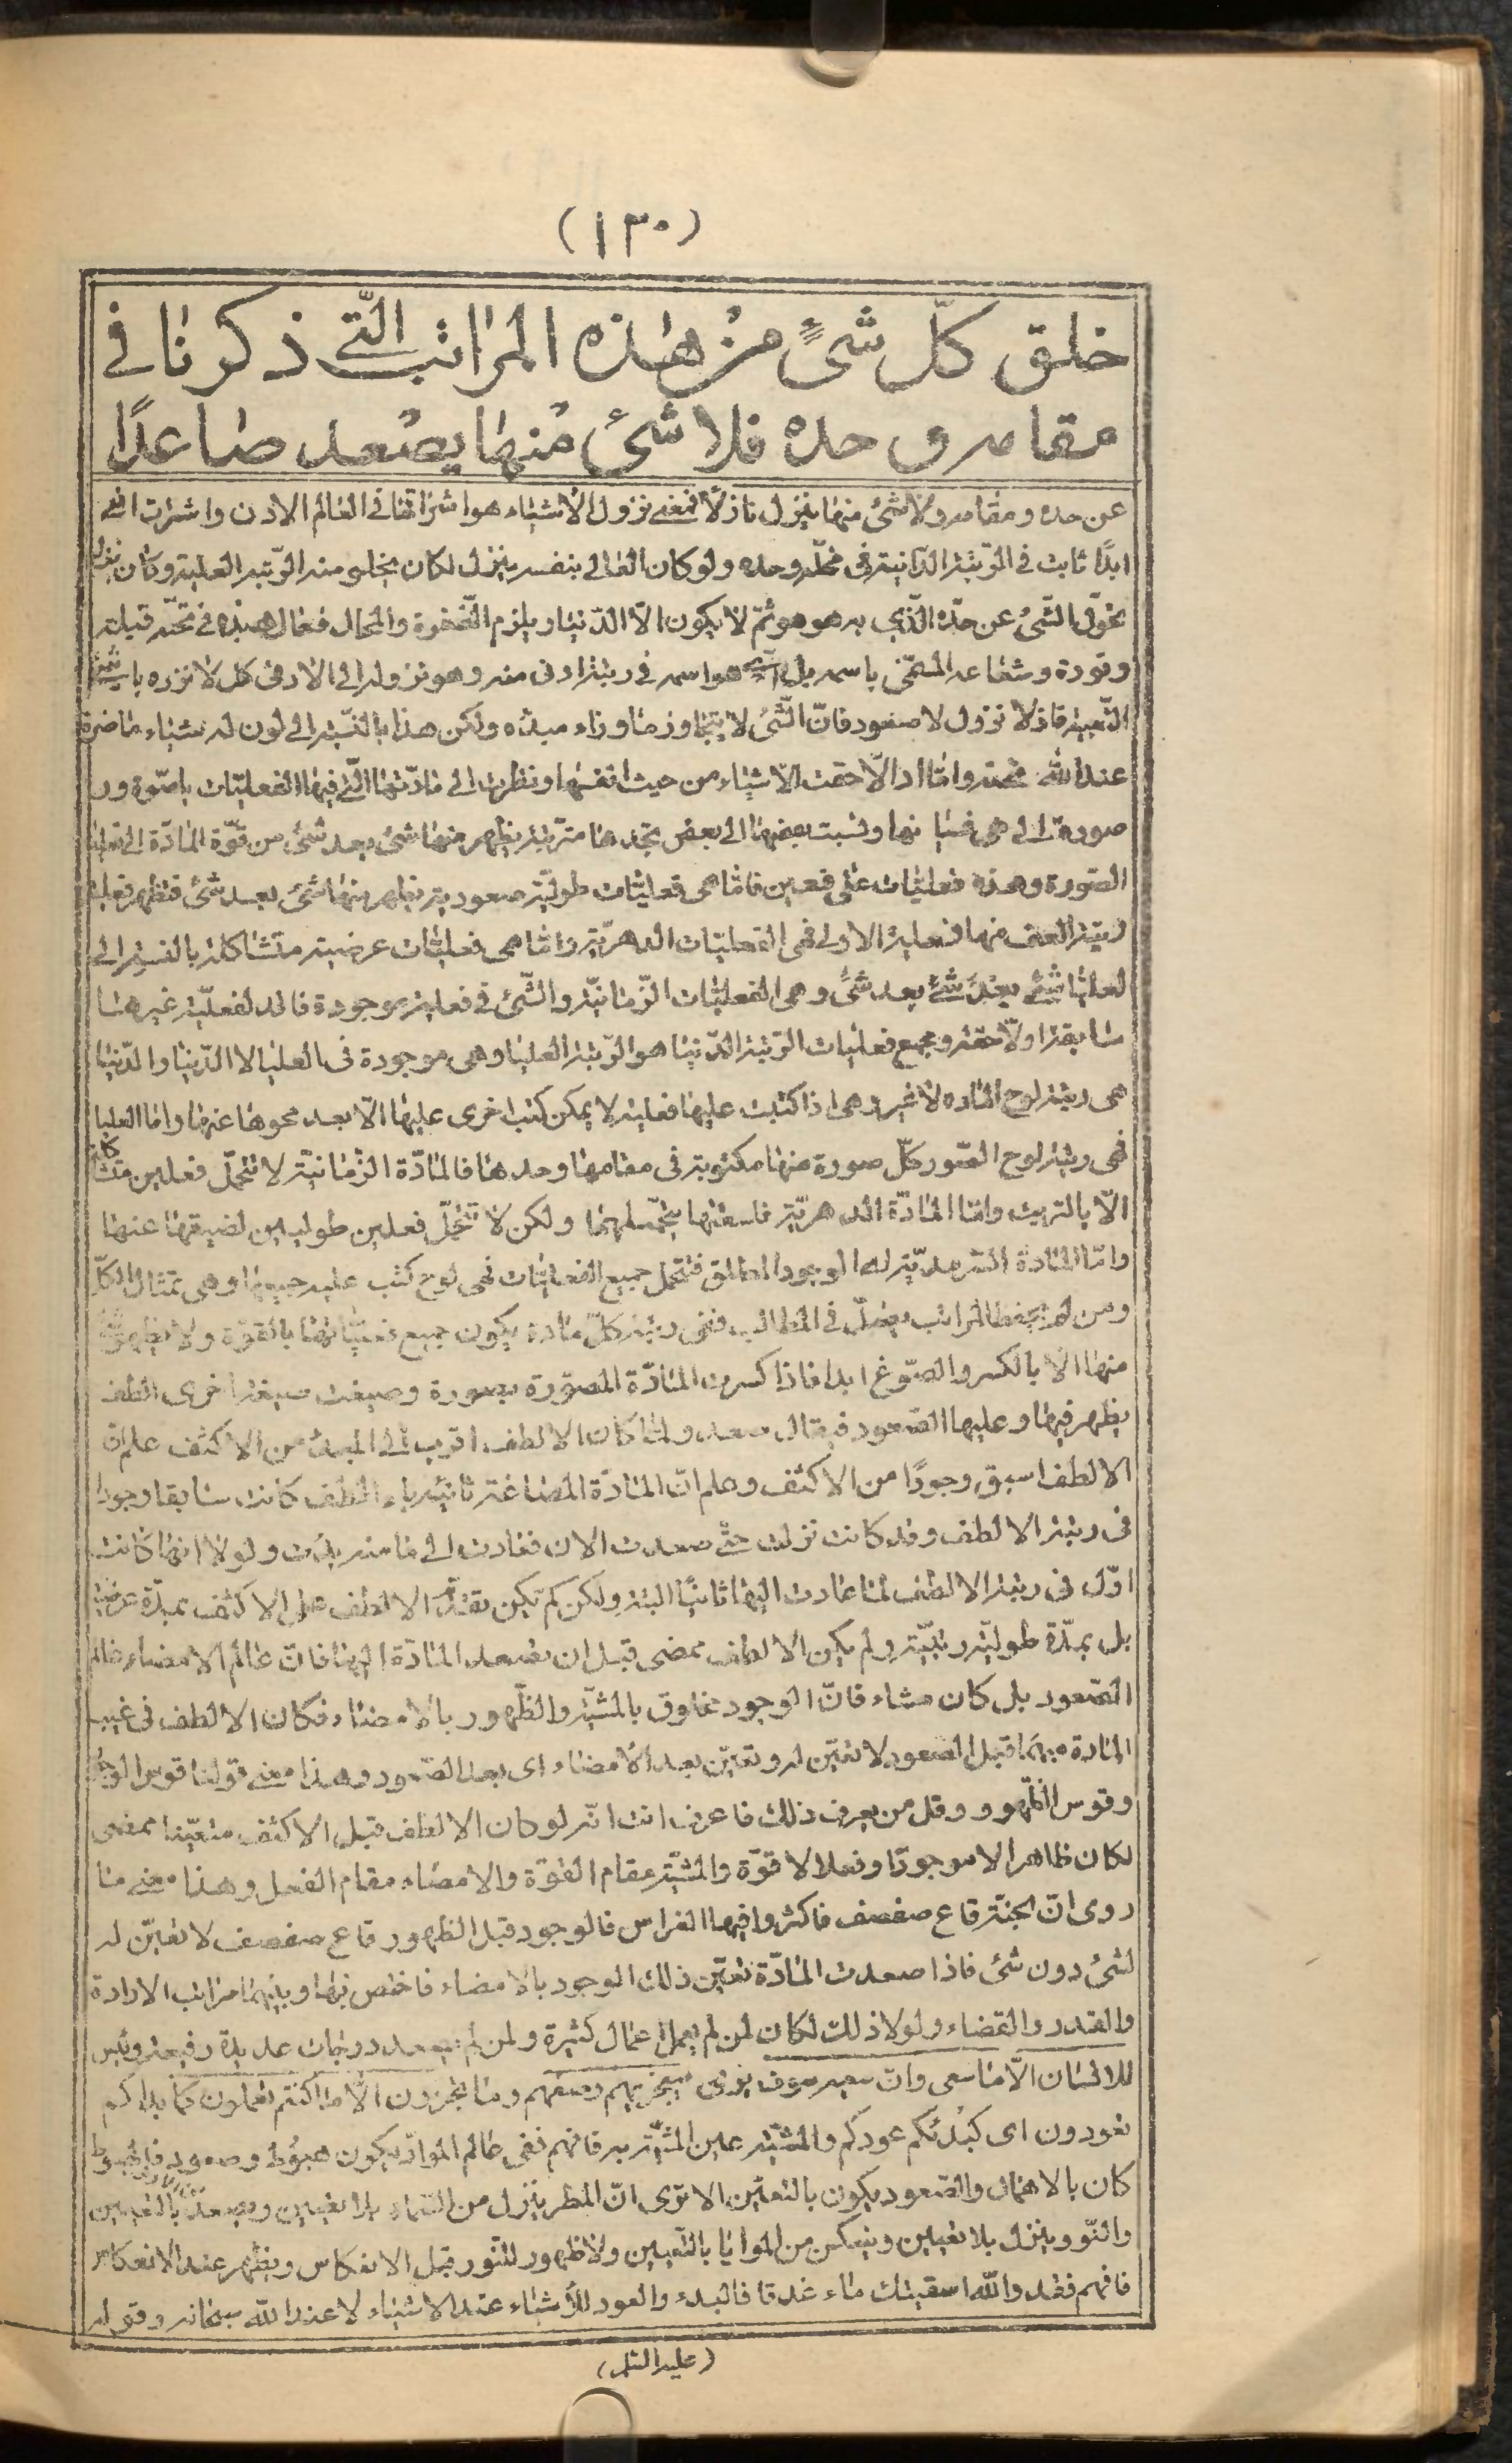 (١٣٠)
خلق كلّ شئ من هذه المراتب التّى ذكرنا فى
مقامه و حده فلا شئ منها يصعد صاعدًا
عن حده و مقامه ولا شئ منها ينزل نازلًا فمعنى نزول الاشياء هو اشراقها فى العالم الادنى واشراق
ابدًا ثابت فى الرّتبة الدّانية فى محلّه وحده ولو كان العالى بنفسه ينزل لكان يخلى منه الرّتبة العلية وكان
تحوّل الشّئ عن حدّه الّذى به هو هو ثمّ لا يكون الّا الدّنيا ويلزم الطّفرة والمحال فعال
ونوره وشعاعه المسمّى باسمه بل هو اسمه فى رتبة ادنى منه وهو نزوله الى الادنى كل
فاذ لا نزول لا صعود فانّ الشّئ لا يتجاوز ما وراء مبدئه ولكن هذا بالنّسبة الى
عند الله واما اذا لاحظت الاشياء من حيث انفسها ونظرت الى مادّتها الّتى فيها الفعليّات
ونسبت بعضها الى بعض تجدها مترتبة يظهر منها شئ بعد شئ من قوّة المادّة الى
الصّورة وهذه فعليّات على قسمين فاما هى فعليّات طوليّة صعودية يظهر منها شئ بعد شئ فتظهر
منها فعلية الاولى فهى الفعليّات الدهريّة واما هى فعليّات عرضية متشاكلة بالنسبة الى
شئ بعد شئ وهى الفعليّات الزّمانيّة والشّئ فى فعلية موجودة فاقد لفعليّة غيرها
سابقة ولاحقة ومجمع فعليات الرّتبة الدّنيا هو الرّتبة العليا وهى موجودة فى العليا لا الدّنيا والدّنيا
هى رتبة لوح المادّه لا غير وهى اذا كتبت عليها فعلية لا يمكن كتب اخرى عليها الّا بعد محوها عنها واما العليا
فهى رتبة لوح الصّور كلّ صورة منها مكتوبة فى مقامها وحدها فالمادّة الزّمانيّة لا تتحمّل فعلين
الّا بالترتيب واما المادّة الدهريّة فاسعتها تتحمّلهما ولكن لا تتحمّل فعلين طوليين لضيقها عنها
واما المادة السّرمديّة له الوجود المطلق فتحمل جميع الفعليّات فهى لوح كتب عليه جميعها وهى تمثال الكلّ
ومن لم يحفظ المراتب يضلّ فى المطالب ففى رتبة كلّ مادة يكون جميع فعليّاتها بالقوّة ولا يظهر
منها الّا بالكسر والصّوغ ابدا فاذا كسرت المادّة المصوّرة بصورة وصيغت صيغة اخرى الطف
يظهر فيها وعليها الصّعود فيقال صعد ولمّا كان الالطف اقرب الى المبدء من الاكثف علم انّ
الالطف اسبق وجودًا من الاكثف وعلم انّ المادّة المصاغة ثانية الطف كانت سابقا وجودا
فى رتبة الالطف وقد كانت نزلت حتّى صعدت الان فعادت الى ما منه بدئت ولولا انّها كانت
اوّل فى رتبة الالطف لما عادت اليها ثانيًا البتة ولكن لم تكن تقدّم الالطف على الاكثف بمدّة عرضيّة
بل بمدّة طوليّة رتبيّة ولم يكن الالطف ممضى قبل ان يصعد المادّة اليها فانّ عالم الامضاء عالم
الصّعود بل كان مشاء فانّ الوجود مخلوق بالمشيّة والظّهور بالامضاء فكان الالطف فى غيب
المادة مبهما قبل الصعود لا تعيّن له وتعيّن بعد الامضاء اى بعد الصّعود وهذا معنى قولنا قوس الوجود
وقوس الظّهور وقل من يعرف ذلك فاعرف انت انّه لو كان الالطف قبل الاكثف متعيّنا ممضى
لكان ظاهرا لا موجودًا وفعلا لا قوّة والمشيّة مقام القوّة والامضاء مقام الفعل وهذا معنى ما
روى انّ الجنّة قاع صفصف فاكثروا فيها الغراس فالوجود قبل الظهور قاع صفصف لا تعيّن له
لشئ دون شئ فاذا صعدت المادّة تعيّن ذلك الوجود بالامضاء فاختص بها وبينهما مراتب الارادة
والقدر والقضاء ولولا ذلك لكان لمن لم يعمل اعمال كثيرة ولمن لم يصعد درجات عديدة رفيعة وليس
للانسان الّا ما سعى وانّ سعيه سوف يرى سيجزيهم وصفهم وما تجزون الّا ما كنتم تعملون كما بدأكم
تعودون اى كبدئكم عودكم فافهم ففى عالم الموادّ يكون هبوط وصعود فالهبوط
كان بالاهمال والصّعود يكون بالتعيّن الا ترى انّ المطر ينزل من السّماء بلا تعيين ويصعد بالتعيين
والنّور ينزل بلا تعيين وينعكس من المرايا بالتّعيين ولا ظهور للنّور قبل الانعكاس ويظهر عند الانعكاس
فافهم فقد والله اسقيتك ماء غدقا فالبدء والعود للأشياء عند الاشياء لا عند الله سبحانه وقوله
(عليه السّلم)